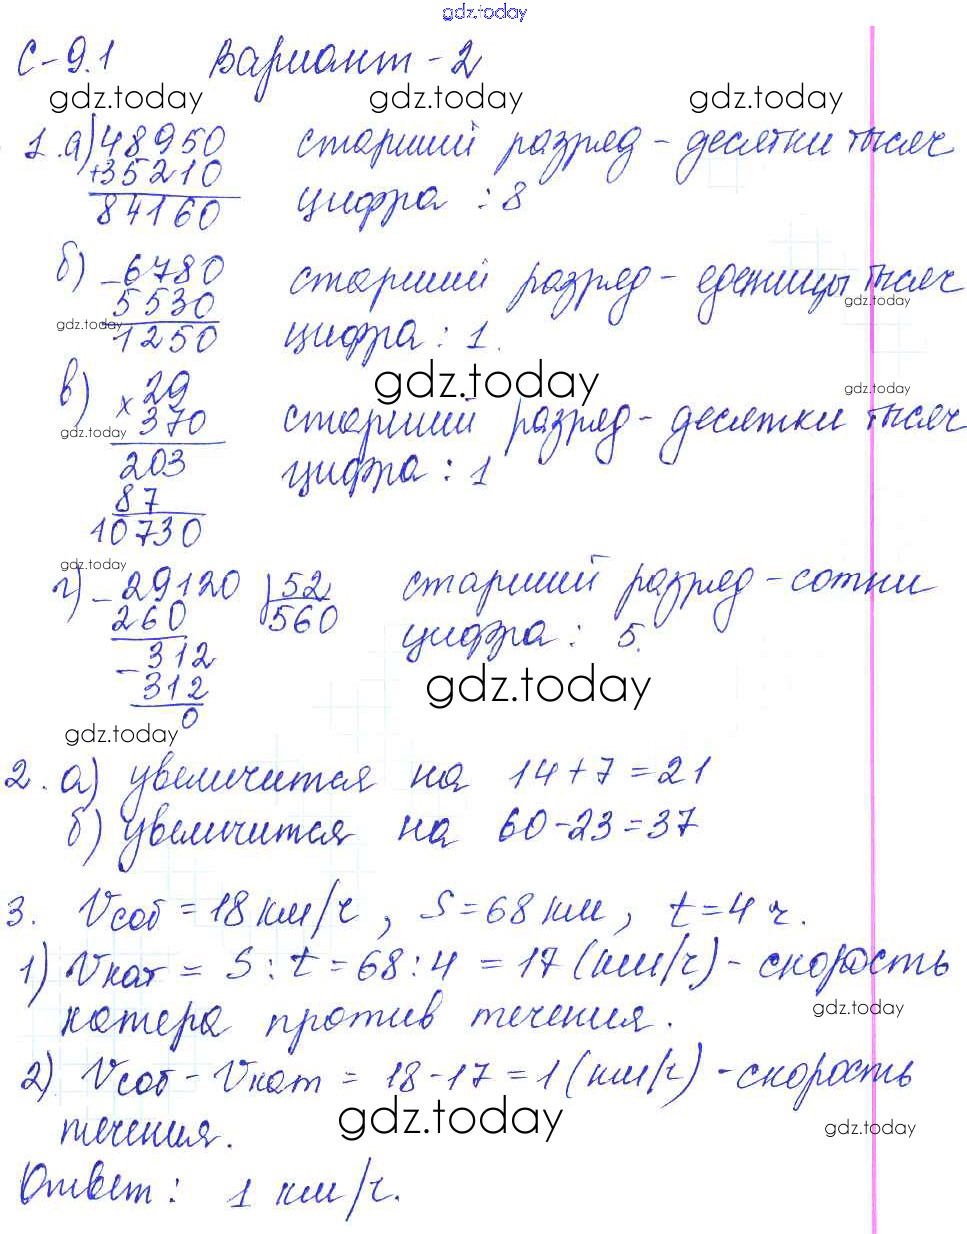 gdz.today
С-9.1 Вариант-2
gdz.today gdz.today gdz.today
1.а) 48950 старший разряд - десятки тысяч
+35210 цифра : 8
84160
б) -6780 старший разряд - еденицы тысяч
5530 gdz.today
gdz.today
1250 цифра : 1.
в) ×29 gdz.today gdz.today
370 старший разряд - десятки тысяч
gdz.today
203 цифра : 1
87
10730
gdz.today
г) -29120 52 старший разряд - сотни
260 560 цифра : 5.
-312
312 gdz.today
0
gdz.today
2. а) увеличится на 14+7=21
б) увеличится на 60-23=37
3. Vсоб = 18 км/ч, S=68 км, t=4 ч.
1) Vкат = S : t = 68 : 4 = 17 (км/ч) - скорость
gdz.today
катера против течения.
2) Vсоб - Vкат = 18-17=1 (км/ч) - скорость
течения. gdz.today gdz.today
Ответ : 1 км/ч.